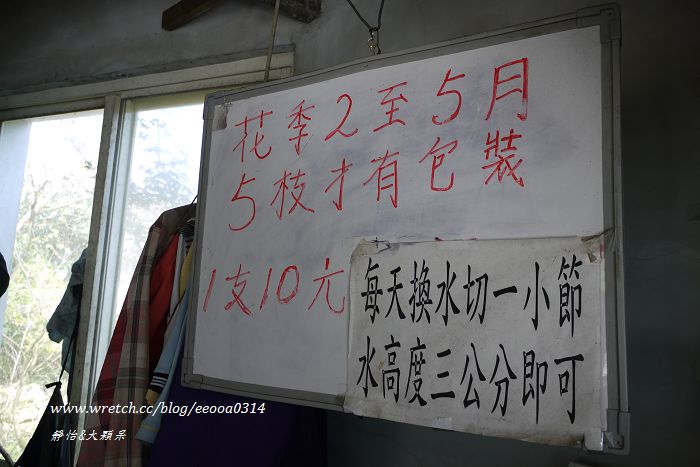 花季2至5月
5枝才有包裝
1支10元
每天換水切一小節
水高度三公分即可
www.wretch.cc/blog/eeooa0314
靜怡&大顆呆